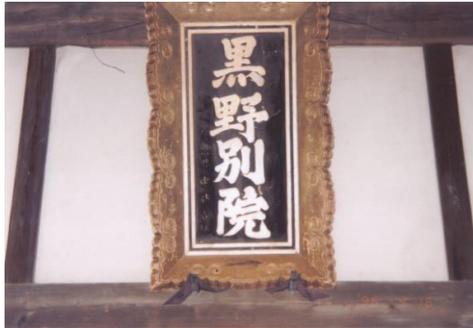 黒野別院